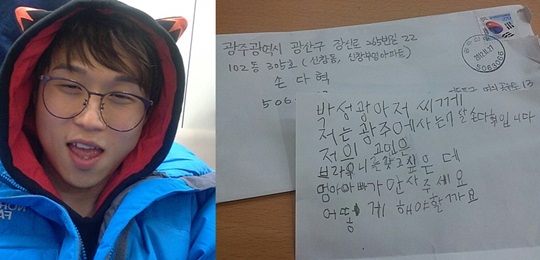 광주광역시 광산구 장신로 265번길 22
102동 305호 (신창동, 신창부영아파트)
손 다 혁
506
박성광아저씨께
저는 광주에사는 7살 손다혁입니다
저의 고민은
브라우니를 갖고싶은데
엄마아빠가 안사주세요
어똫게 해야할까요